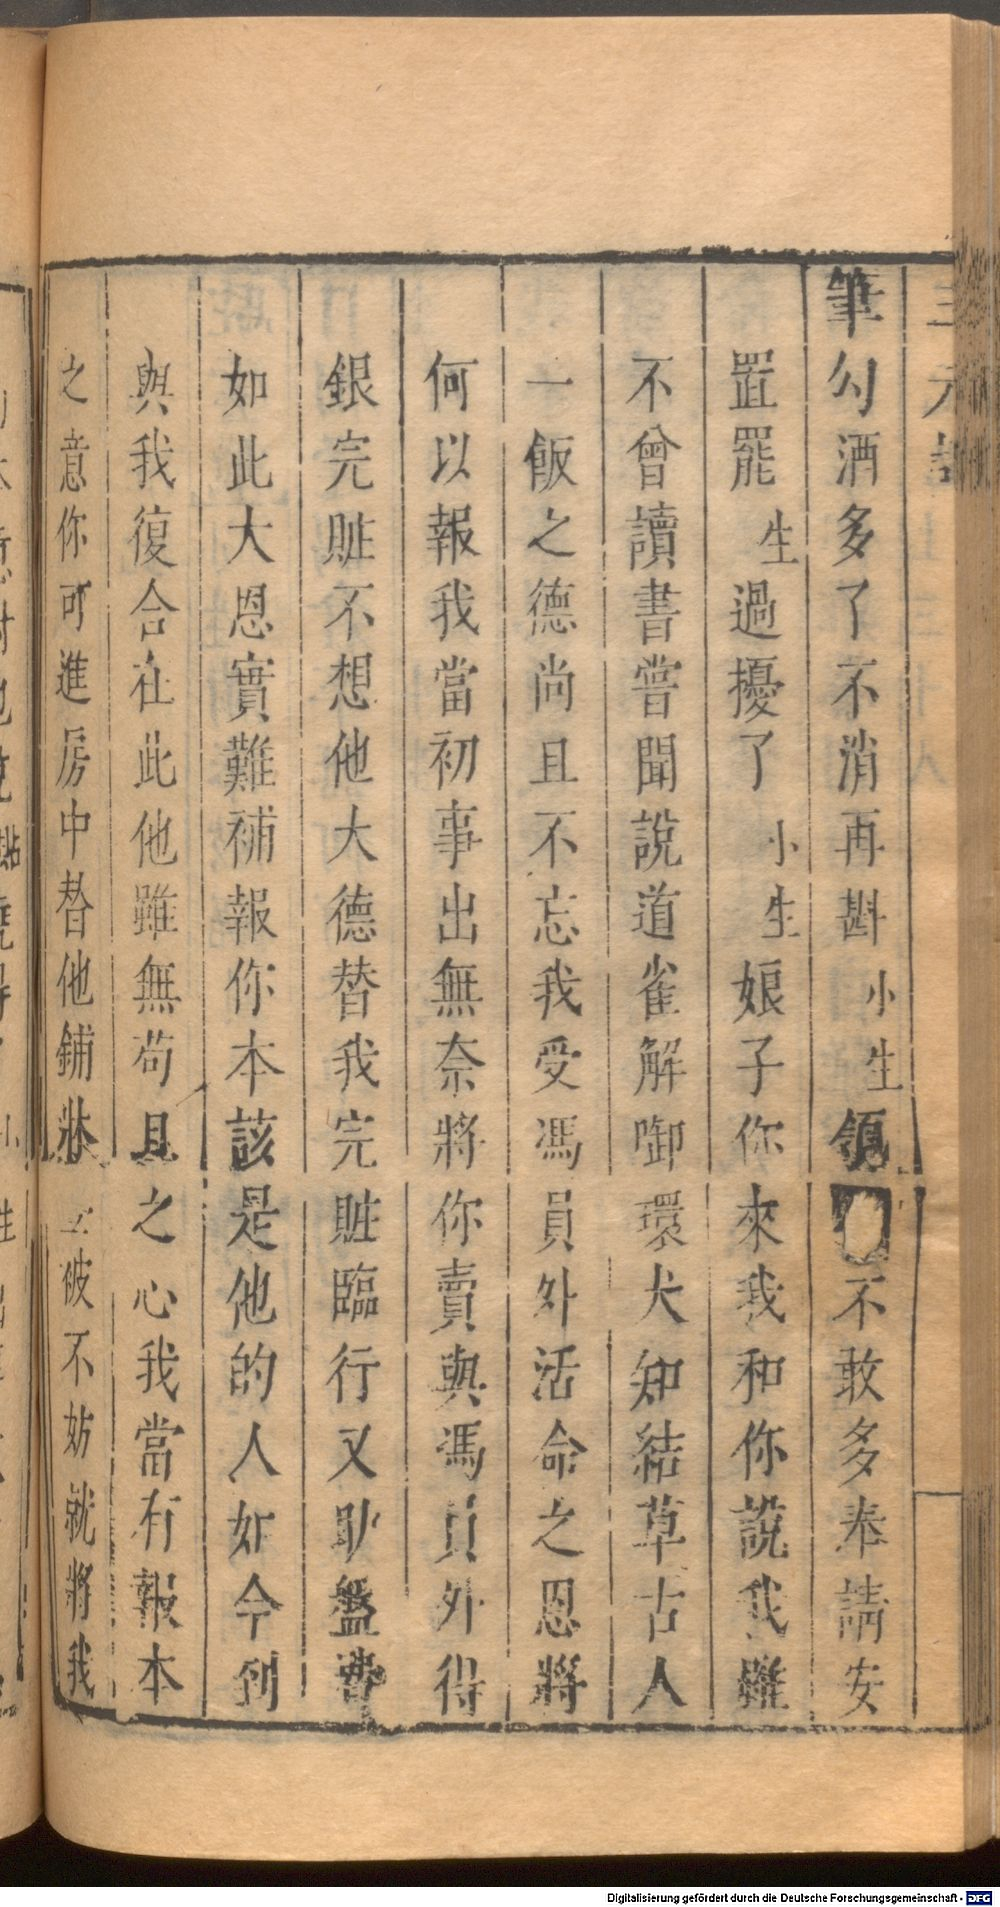 筆勾酒多了不消再斟小生領不敢多奉請安
置罷生過擾了小生娘子你來我和你說我雖
不曾讀書嘗聞說道雀解啣環犬知結草古人
一飯之德尚且不忘我受馮員外活命之恩將
何以報我當初事出無奈將你賣與馮員外得
銀完賍不想他大德替我完賍臨行又助盤費
如此大恩實難補報你本該是他的人如今到
與我復合在此他雖無苟且之心我當有報本
之意你可進房中替他鋪牀被不妨就將我
Digitalisierung gefördert durch die Deutsche Forschungsgemeinschaft - DFG